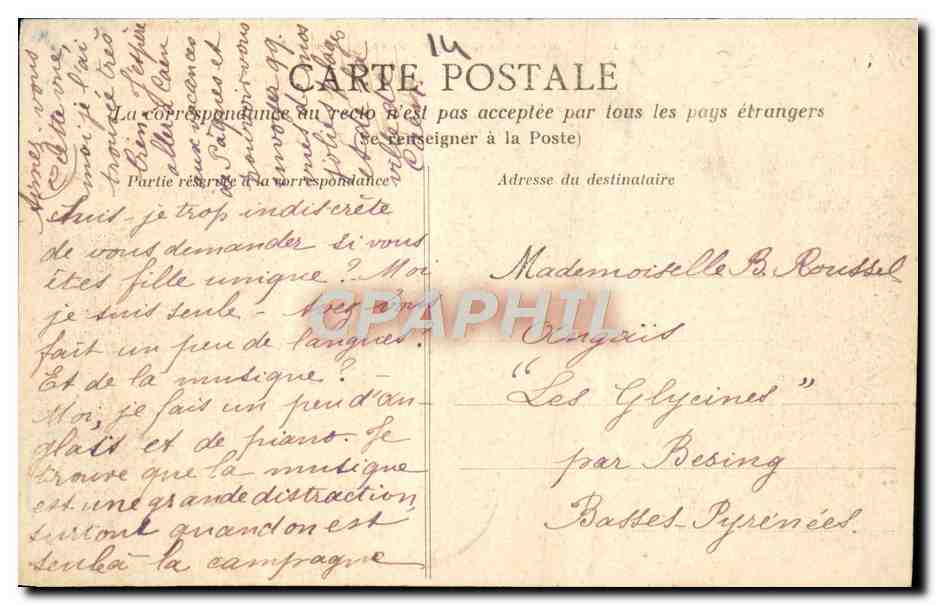 14
CARTE POSTALE
La correspondance au recto n'est pas acceptée par tous les pays étrangers
(se renseigner à la Poste)
Partie réservée à la correspondance
Adresse du destinataire
Suis-je trop indiscrète
de vous demander si vous
êtes fille unique ? - Moi
je suis seule - Avez-vous
fait un peu de langues ?
Et de la musique ? -
Moi, je fais un peu d'an-
glais et de piano. Je
trouve que la musique
est une grande distraction,
surtout quand on est
seule à la campagne
Aimez-vous
cette vue,
moi je l'ai
trouvée très
bien J'espère
aller à Caen
aux vacances
de Pâques et
pouvoir vous
envoyer qq.
unes de nos
jolies
Mademoiselle B. Roussel
Angaïs
"Les Glycines"
par Besing
Basses-Pyrénées.
CPAPHIL